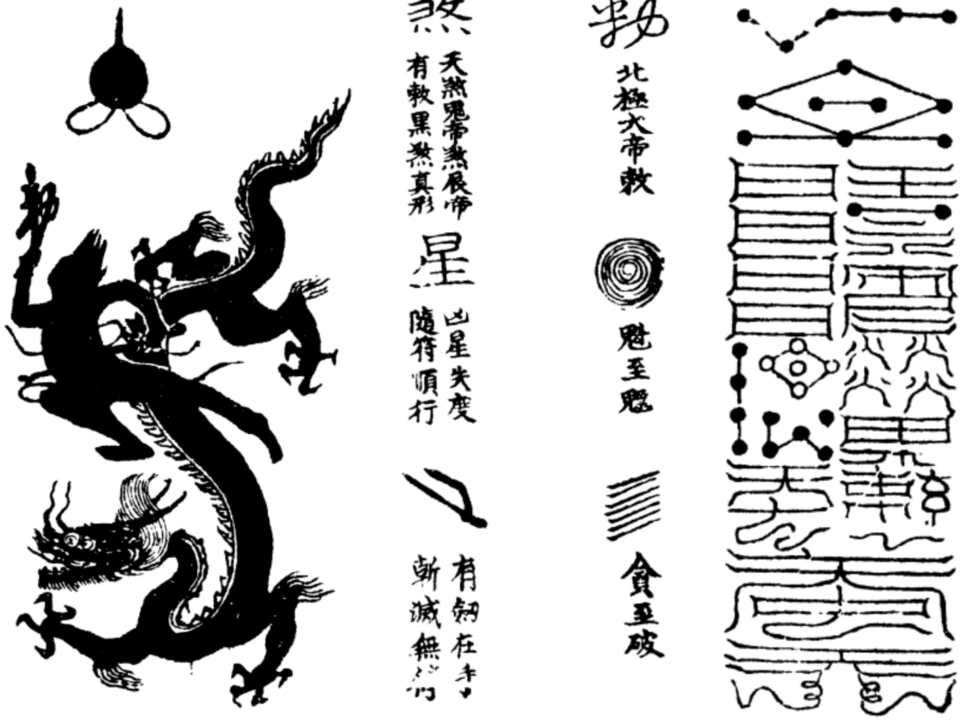 勅
北極大帝敕
魁至
貪至破
煞
天煞鬼帝煞展帝
有敕黑煞真形
星
凶星失度
隨符順行
有劒在手
斬滅無